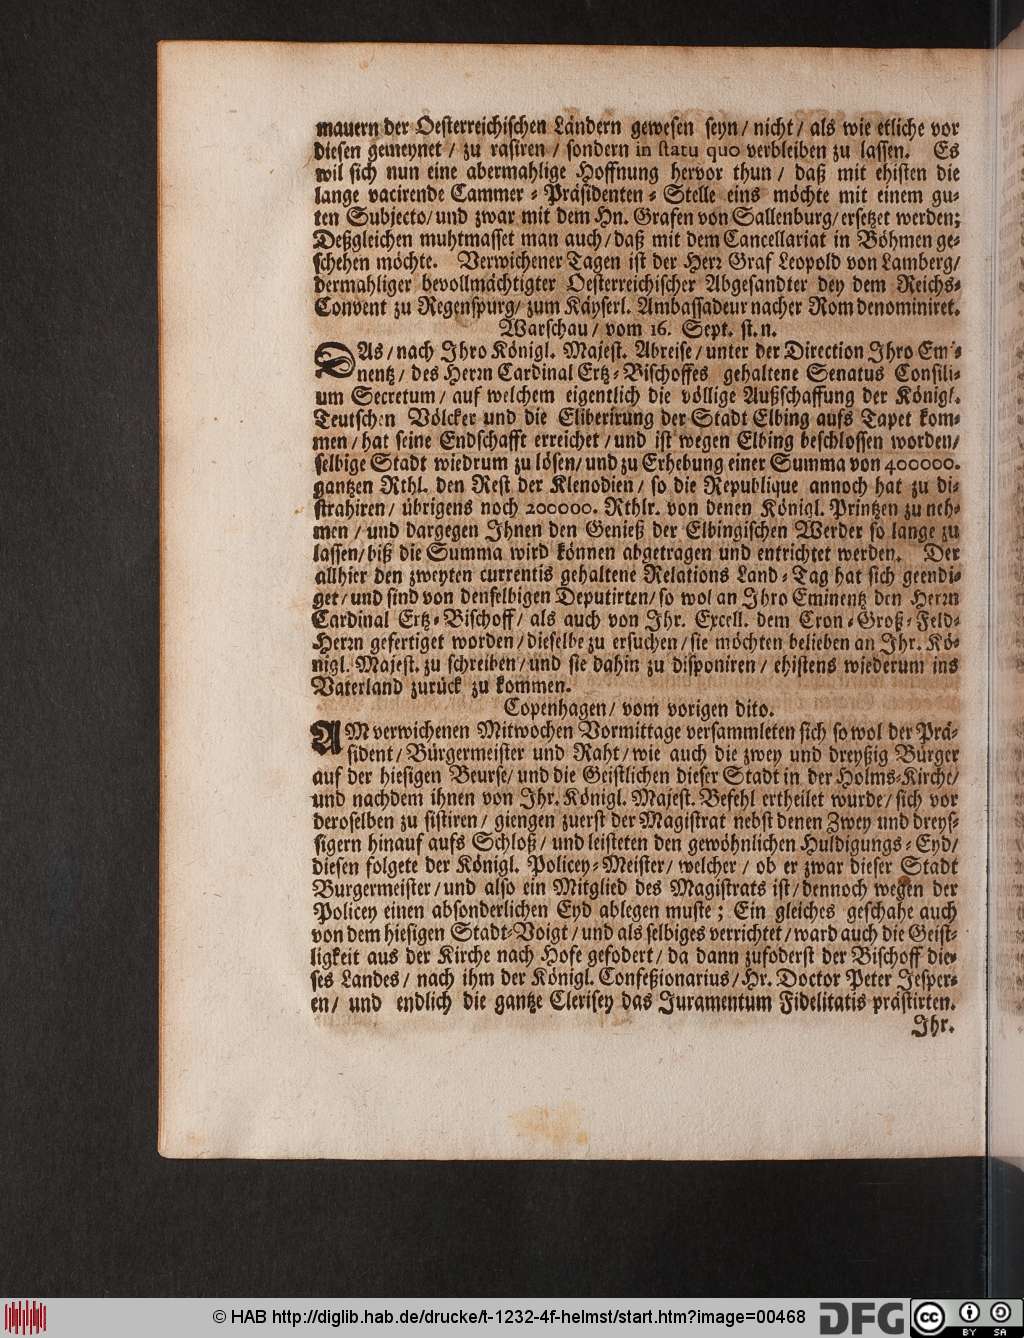 mauern der Oesterreichischen Ländern gewesen seyn / nicht / als wie etliche vor
diesen gemeynet / zu rasiren / sondern in statu quo verbleiben zu lassen. Es
wil sich nun eine abermahlige Hoffnung hervor thun / daß mit ehisten die
lange vacirende Cammer-Präsidenten-Stelle eins möchte mit einem gu-
ten Subjecto / und zwar mit dem Hn. Grafen von Sallenburg / ersetzet werden;
Deßgleichen muhtmasset man auch / daß mit dem Cancellariat in Böhmen ge-
schehen möchte. Verwichener Tagen ist der Herr Graf Leopold von Lamberg /
dermahliger bevollmächtigter Oesterreichischer Abgesandter bey dem Reichs-
Convent zu Regenspurg / zum Käyserl. Ambassadeur nacher Rom denominiret.
Warschau / vom 16. Sept. st. n.
DAs / nach Ihro Königl. Majest. Abreise / unter der Direction Ihro Emi-
nentz / des Herrn Cardinal Ertz-Bischoffes gehaltene Senatus Consili-
um Secretum / auf welchem eigentlich die völlige Außschaffung der Königl.
Teutschen Völcker und die Eliberirung der Stadt Elbing aufs Tapet kom-
men / hat seine Endschafft erreichet / und ist wegen Elbing beschlossen worden /
selbige Stadt wiedrum zu lösen / und zu Erhebung einer Summa von 400000.
gantzen Rthl. den Rest der Klenodien / so die Republique annoch hat zu di-
strahiren / übrigens noch 200000. Rthlr. von denen Königl. Printzen zu neh-
men / und dargegen Ihnen den Genieß der Elbingischen Werder so lange zu
lassen / biß die Summa wird können abgetragen und entrichtet werden. Der
allhier den zweyten currentis gehaltene Relations Land-Tag hat sich geendi-
get / und sind von denselbigen Deputirten / so wol an Ihro Eminentz den Herrn
Cardinal Ertz-Bischoff / als auch von Ihr. Excell. dem Cron-Groß-Feld-
Herrn gefertiget worden / dieselbe zu ersuchen / sie möchten belieben an Ihr. Kö-
nigl. Majest. zu schreiben / und sie dahin zu disponiren / ehistens wiederum ins
Vaterland zurück zu kommen.
Copenhagen / vom vorigen dito.
AM verwichenen Mitwochen Vormittage versammleten sich so wol der Prä-
sident / Bürgermeister und Raht / wie auch die zwey und dreyßig Bürger
auf der hiesigen Beurse / und die Geistlichen dieser Stadt in der Holms-Kirche /
und nachdem ihnen von Ihr. Königl. Majest. Befehl ertheilet wurde / sich vor
deroselben zu sistiren / giengen zuerst der Magistrat nebst denen Zwey und dreys-
sigern hinauf aufs Schloß / und leisteten den gewöhnlichen Huldigungs-Eyd /
diesen folgete der Königl. Policey-Meister / welcher / ob er zwar dieser Stadt
Burgermeister / und also ein Mitglied des Magistrats ist / dennoch wegen der
Policey einen absonderlichen Eyd ablegen muste ; Ein gleiches geschahe auch
von dem hiesigen Stadt-Voigt / und als selbiges verrichtet / ward auch die Geist-
ligkeit aus der Kirche nach Hofe gefodert / da dann zufoderst der Bischoff die-
ses Landes / nach ihm der Königl. Confeßionarius / Hr. Doctor Peter Jesper-
en / und endlich die gantze Clerisey das Juramentum Fidelitatis prästirten.
Ihr.
© HAB http://diglib.hab.de/drucke/t-1232-4f-helmst/start.htm?image=00468
DFG
cc BY SA